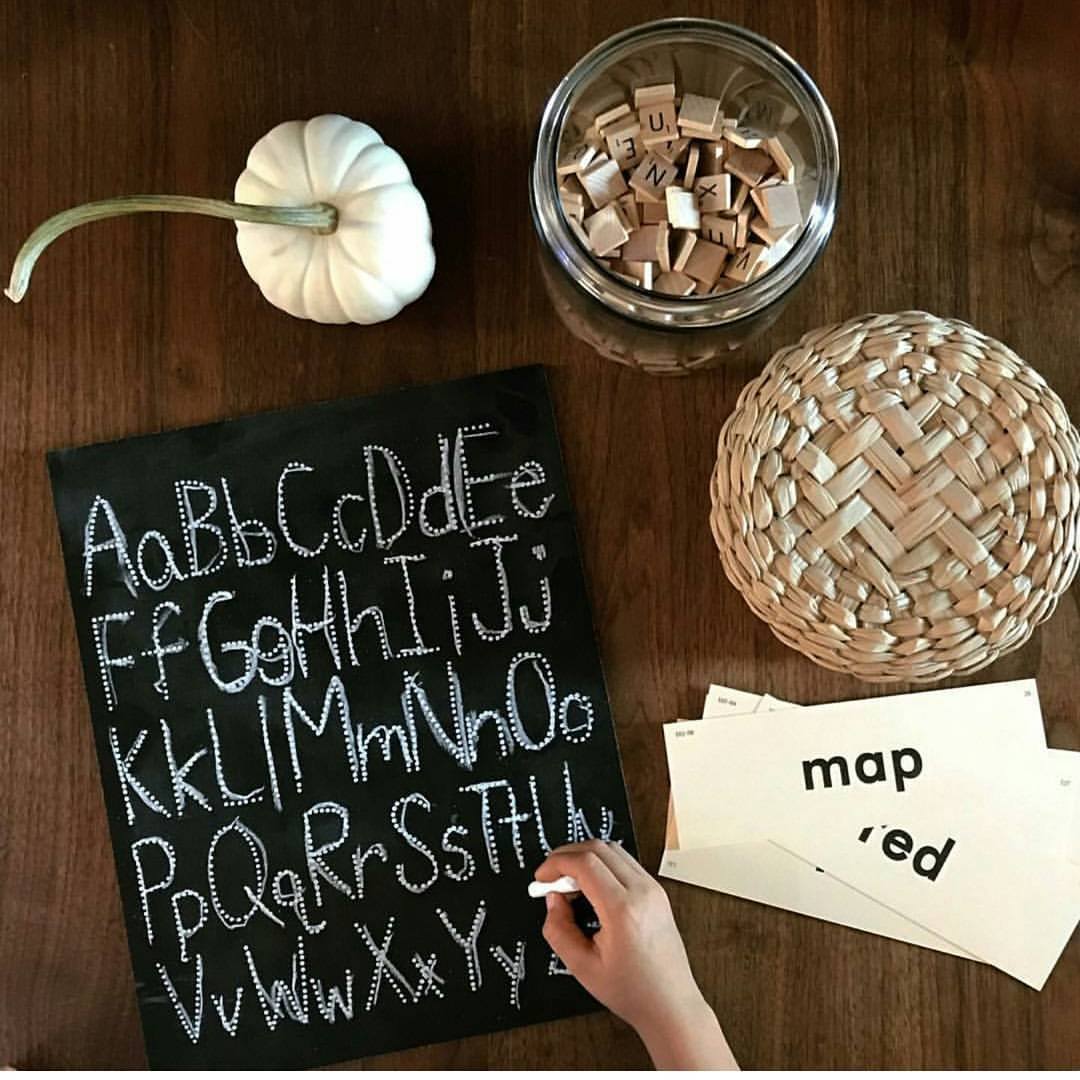 U
E
N
X
Aa Bb Cc Dd Ee
Ff Gg Hh Ii Jj
Kk Ll Mm Nn Oo
Pp Qq Rr Ss Tt Uu
Vv Ww Xx Yy
map
red